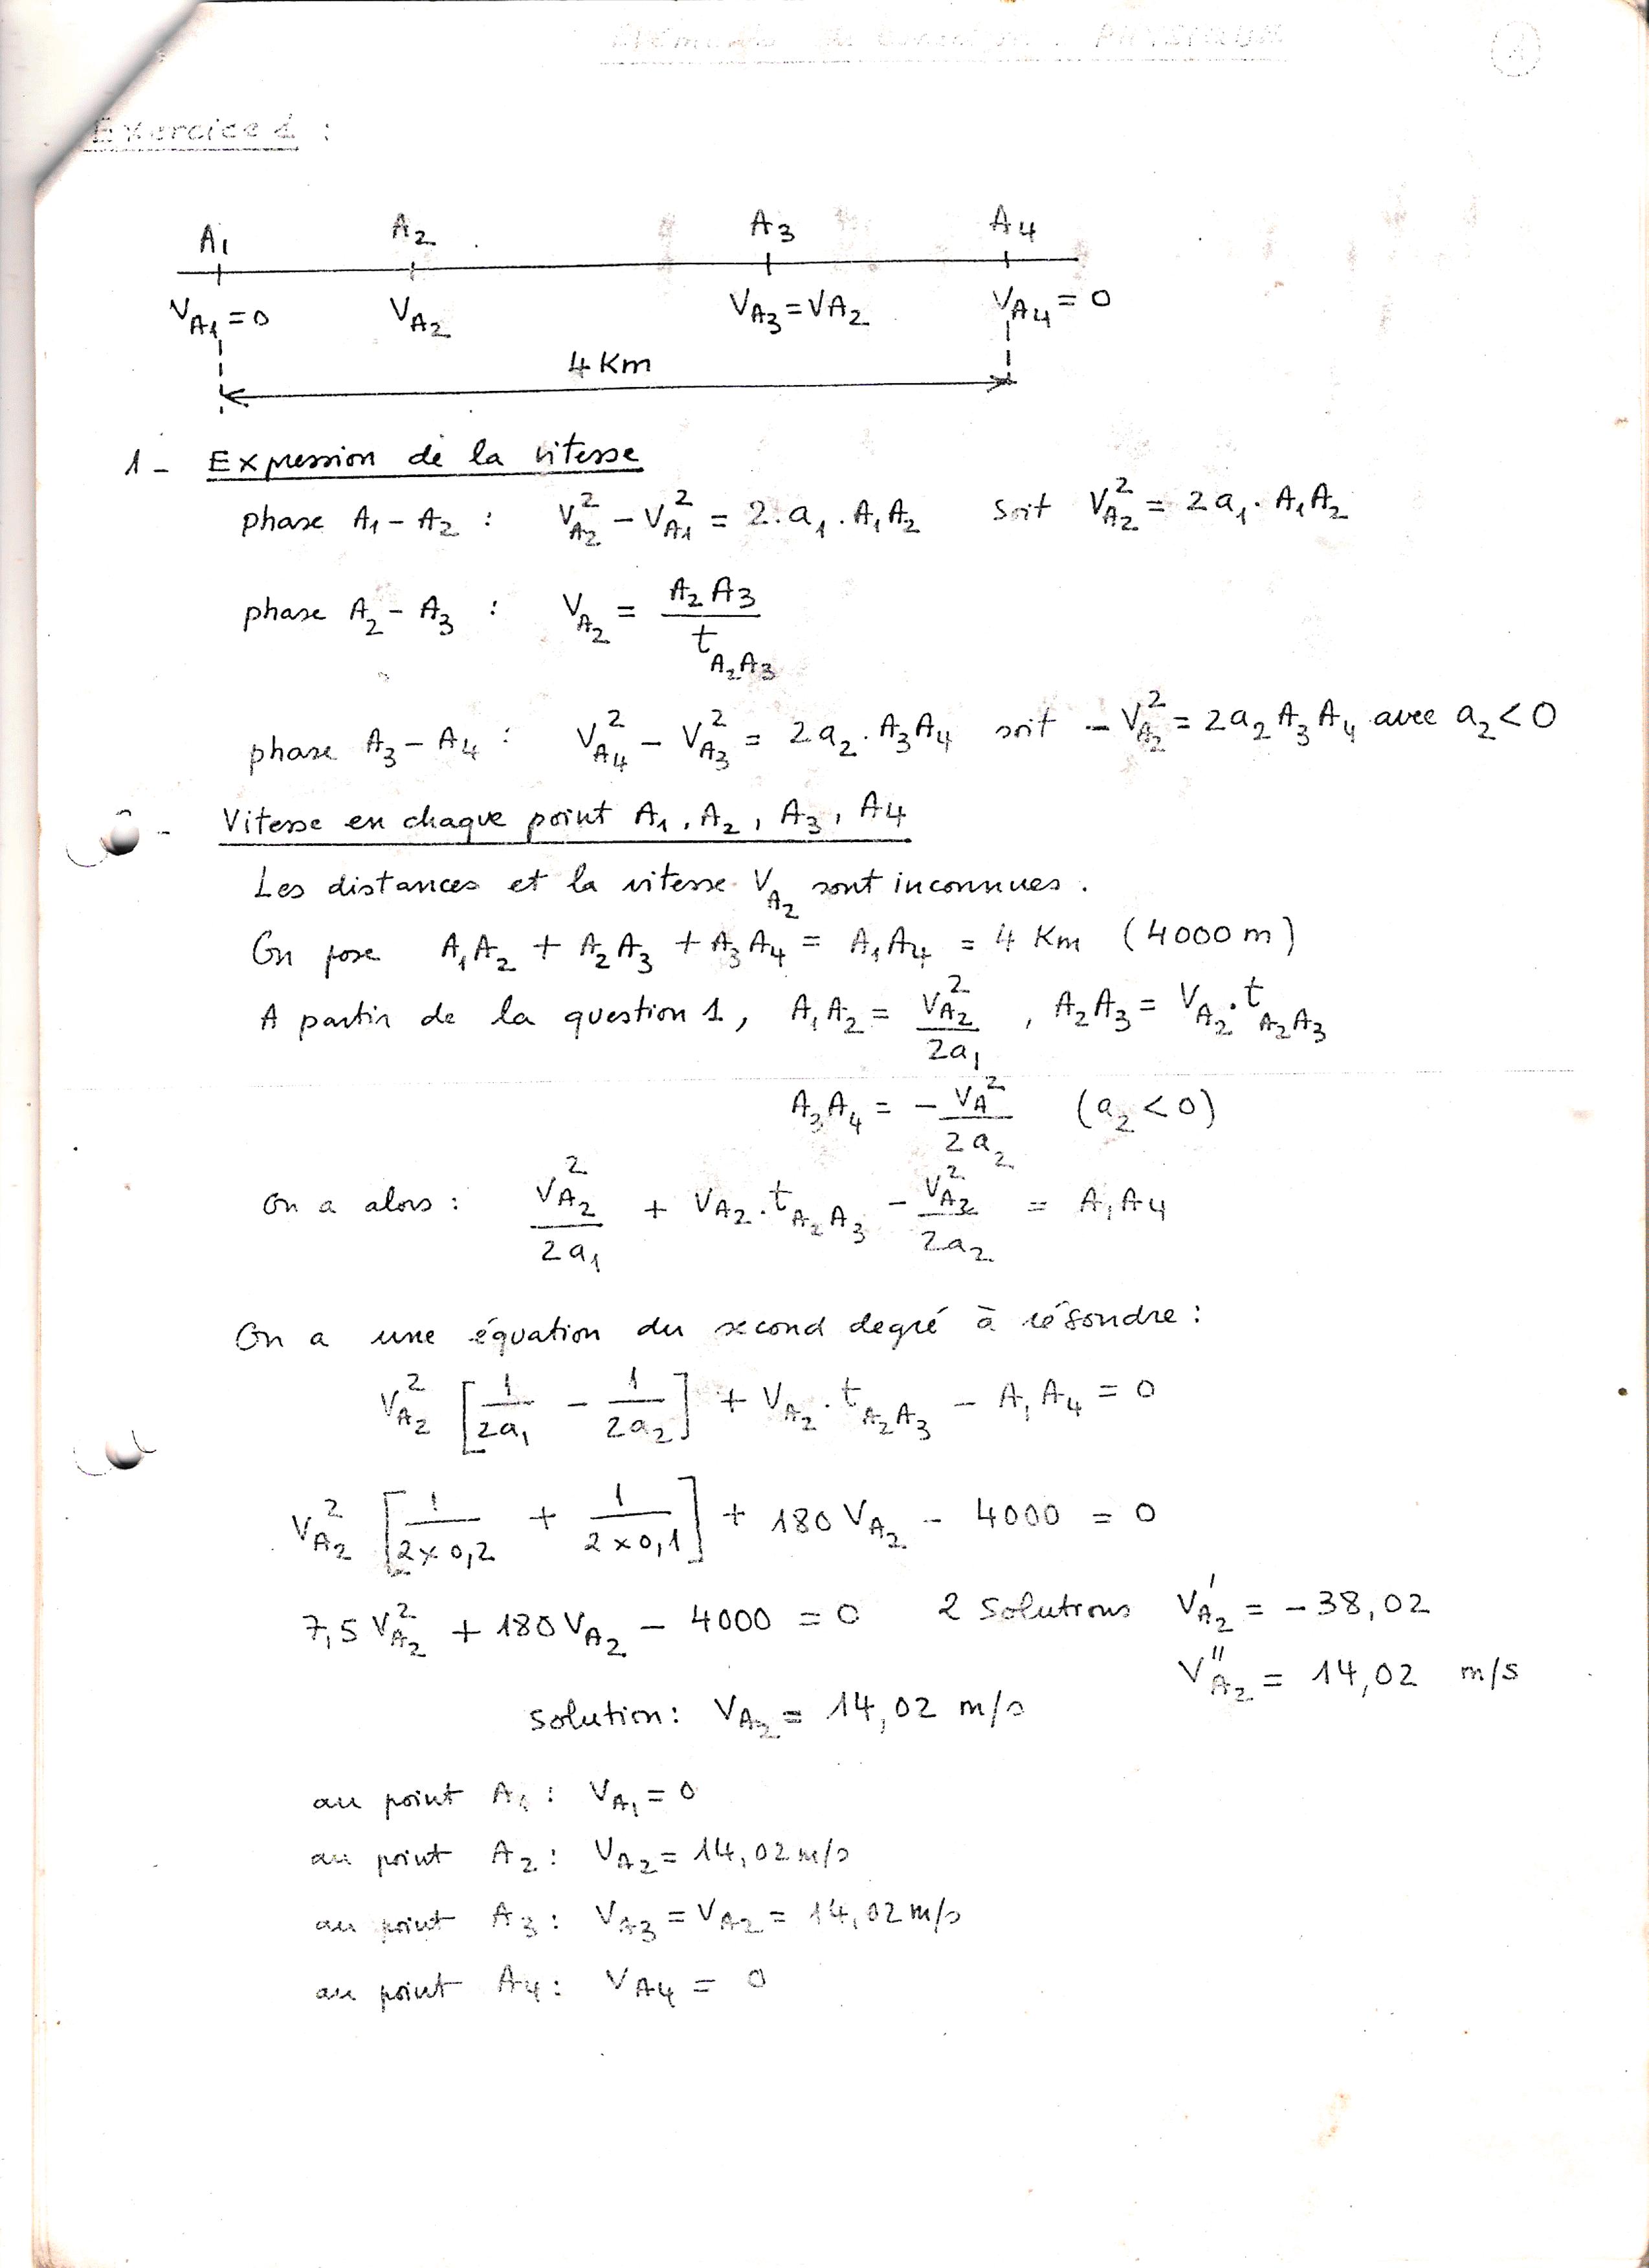 PHYSIQUE
Exercice 1 :
A₁ A₂ A₃ A₄
V_A₁ = 0 V_A₂ V_A₃ = V_A₂ V_A₄ = 0
4 Km
1 - Expression de la vitesse
phase A₁ - A₂ : V²_A₂ - V²_A₁ = 2.a₁.A₁A₂ soit V²_A₂ = 2a₁.A₁A₂
phase A₂ - A₃ : V_A₂ = A₂A₃ / t_A₂A₃
phase A₃ - A₄ : V²_A₄ - V²_A₃ = 2a₂.A₃A₄ soit - V²_A₂ = 2a₂A₃A₄ avec a₂ < 0
- Vitesse en chaque point A₁, A₂, A₃, A₄
Les distances et la vitesse V_A₂ sont inconnues.
On pose A₁A₂ + A₂A₃ + A₃A₄ = A₁A₄ = 4 Km (4000 m)
A partir de la question 1, A₁A₂ = V²_A₂ / 2a₁ , A₂A₃ = V_A₂.t_A₂A₃
A₃A₄ = - V_A² / 2a₂ (a₂ < 0)
on a alors : V²_A₂ / 2a₁ + V_A₂.t_A₂A₃ - V²_A₂ / 2a₂ = A₁A₄
On a une équation du second degré à résoudre :
V²_A₂ [1/2a₁ - 1/2a₂] + V_A₂.t_A₂A₃ - A₁A₄ = 0
V²_A₂ [1/(2×0,2) + 1/(2×0,1)] + 180 V_A₂ - 4000 = 0
7,5 V²_A₂ + 180 V_A₂ - 4000 = 0 2 Solutions V'_A₂ = - 38,02
V''_A₂ = 14,02 m/s
solution : V_A₂ = 14,02 m/s
au point A₁ : V_A₁ = 0
au point A₂ : V_A₂ = 14,02 m/s
au point A₃ : V_A₃ = V_A₂ = 14,02 m/s
au point A₄ : V_A₄ = 0